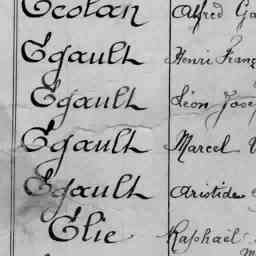 Ecolan Alfred
Egault Henri
Egault Léon
Egault Marcel
Egault Aristide
Elie Raphaël